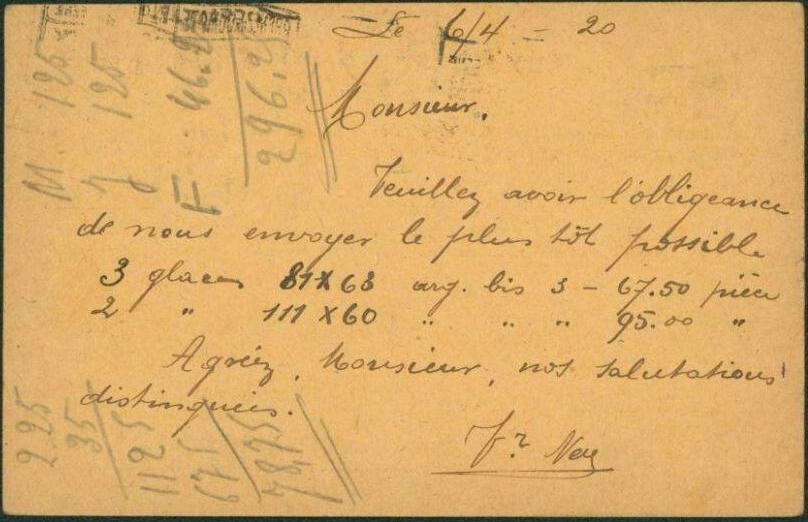 Le 6/4 - 20
Monsieur,
Veuillez avoir l'obligeance
de nous envoyer le plus tôt possible
3 glaces 81 x 68 arg. bis 3 - 67.50 pièce
2 " 111 x 60 " " " 95.00 "
Agréez, Monsieur, nos salutations
distinguées.
M 125
J 125
F 46.2
296.2
225
35
1125
675
78,75